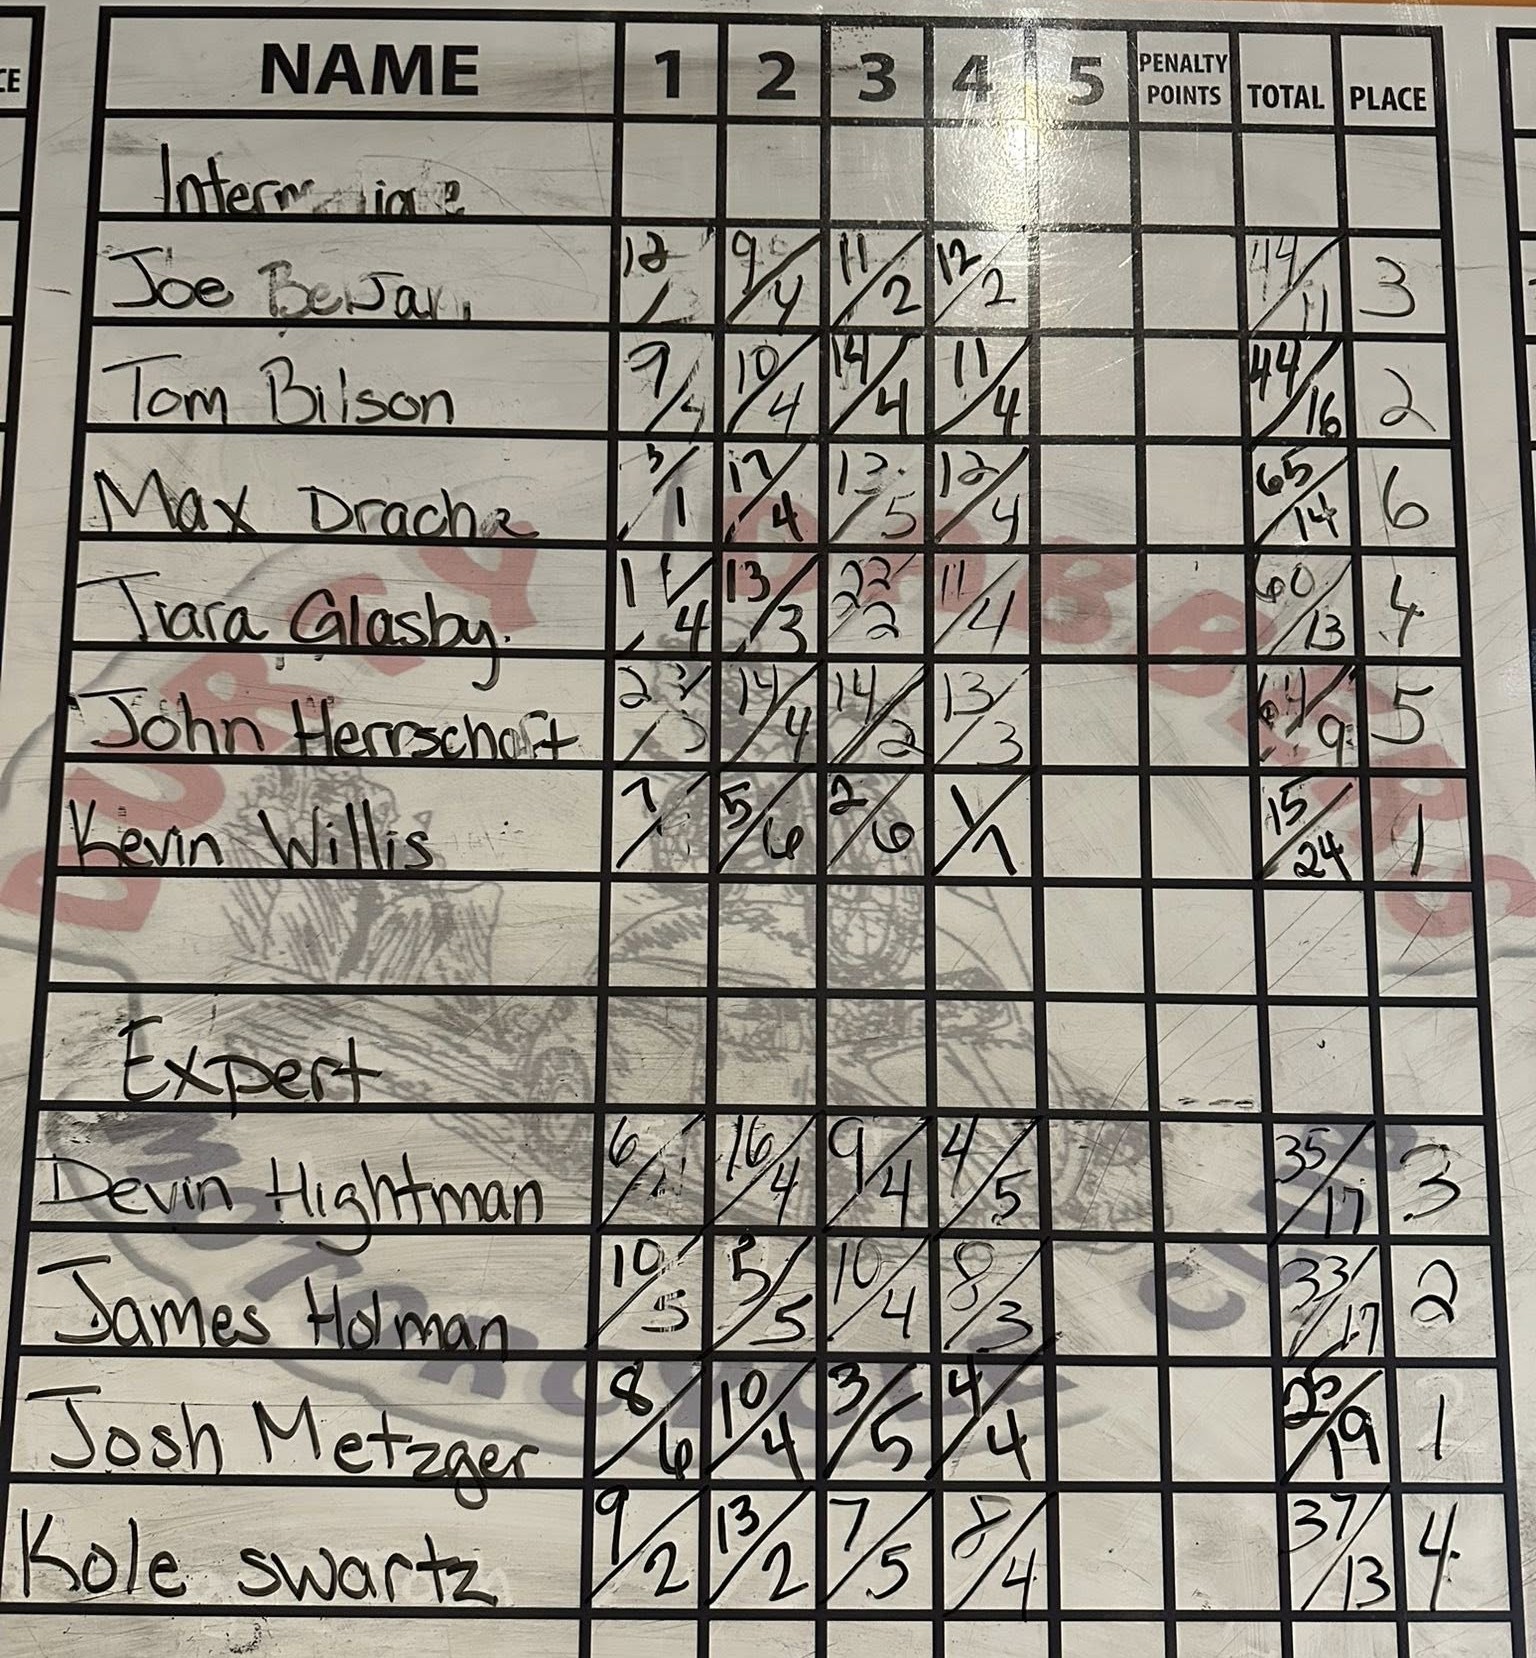 CE NAME 1 2 3 4 5 PENALTY POINTS TOTAL PLACE
Joe 12/ 9/4 11/2 12/2 44/11 3
Tom Bilson 9/4 10/4 14/4 11/4 44/16 2
Max Drache /1 17/4 /5 12/4 65/14 6
Tiara Glasby. /4 13/3 22/2 11/4 60/13 4
John Herrschaft 23/3 14/4 14/2 13/3 64/9 5
Kevin Willis 7/ 5/6 2/6 1/7 15/24 1
Expert
Devin Hightman 6/4 16/4 9/4 4/5 35/17 3
James Holman 10/5 5/5 10/4 8/3 33/17 2
Josh Metzger 8/6 10/4 3/5 4/4 25/19 1
Kole swartz 9/2 13/2 7/5 8/4 37/13 4
DURTY DABBERS
MOTORCYCLE CLUB